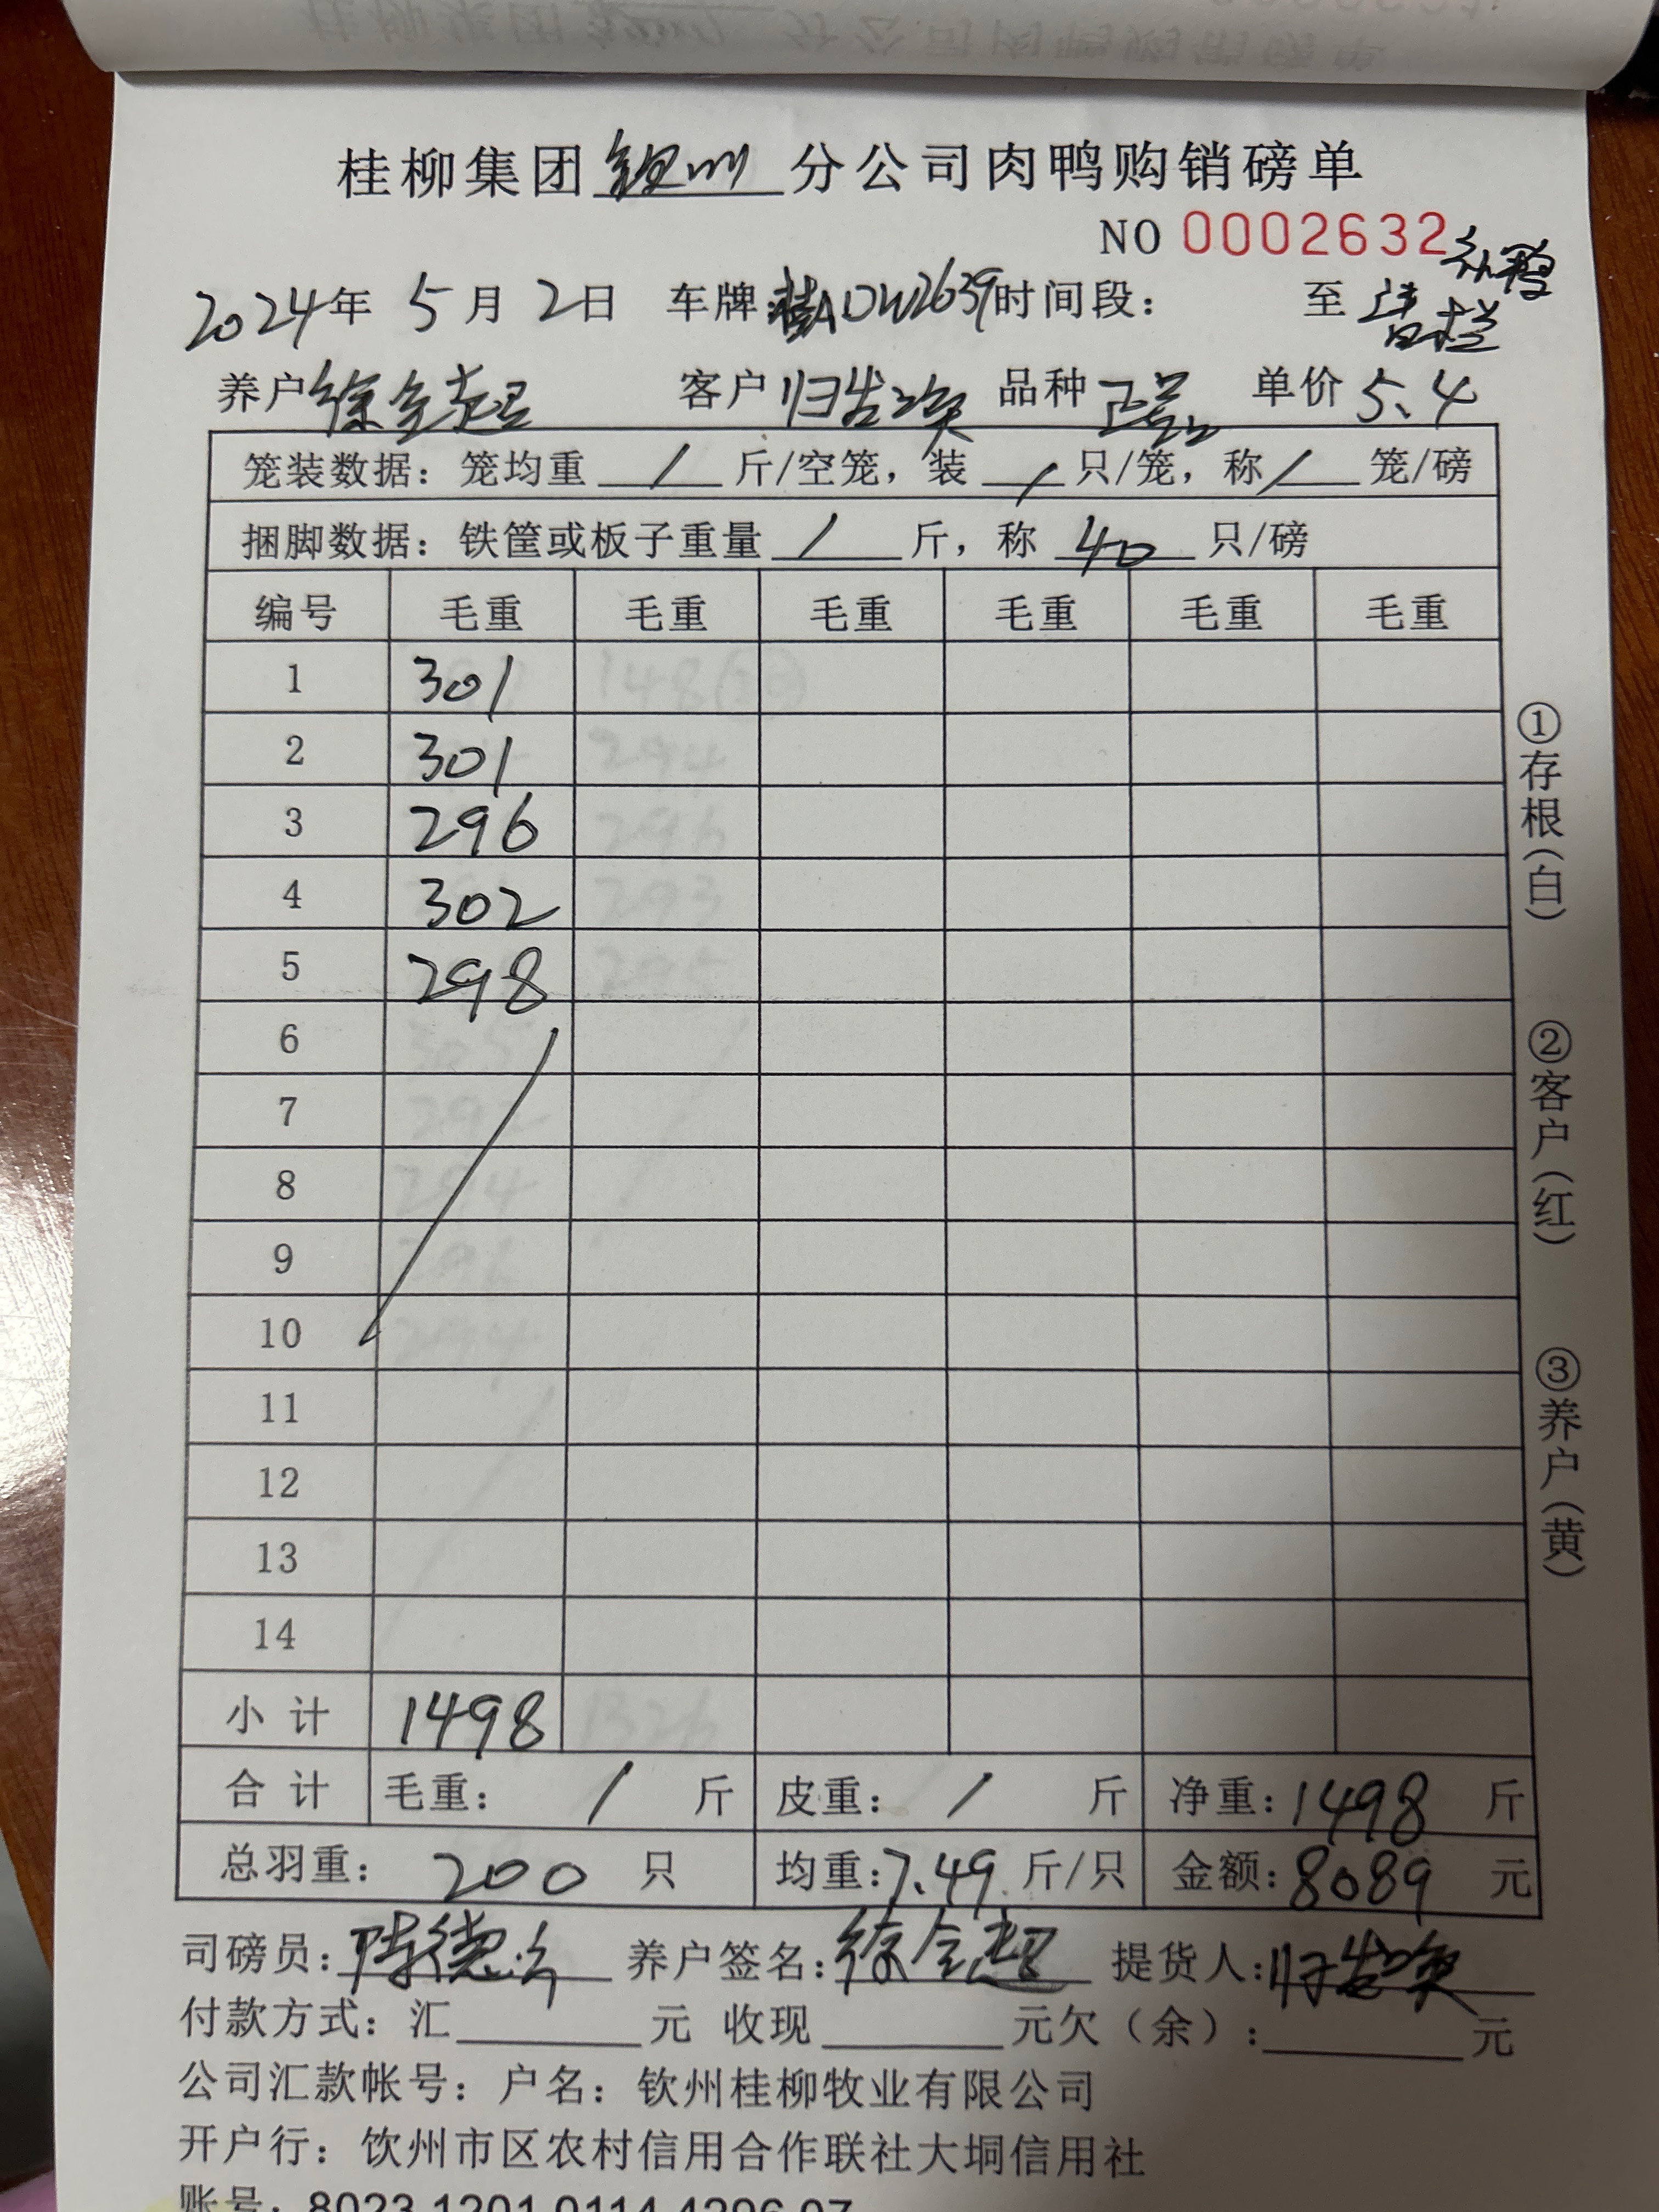 桂柳集团钦州分公司肉鸭购销磅单
NO 0002632
补鸭
2024年 5月 2日 车牌:桂A0W2639 时间段: 至 清栏
养户 徐全超 客户 归发 品种 正品 单价 5.4
笼装数据: 笼均重 / 斤/空笼, 装 / 只/笼, 称 / 笼/磅
捆脚数据: 铁筐或板子重量 / 斤, 称 40 只/磅
编号 毛重 毛重 毛重 毛重 毛重 毛重
1 301 148
2 301 294
3 296 296
4 302 293
5 298 295
6 305
7 292
8 294
9 296
10 294
11
12
13
14
小计 1498 1326
合计 毛重: / 斤 皮重: / 斤 净重: 1498 斤
总羽重: 200 只 均重: 7.49 斤/只 金额: 8089 元
司磅员: 陈德 养户签名: 徐全超 提货人: 归发
付款方式: 汇 元 收现 元欠(余): 元
公司汇款帐号: 户名: 钦州桂柳牧业有限公司
开户行: 钦州市区农村信用合作联社大垌信用社
账号: 8023 1201 0114 4296 07
①存根(白)
②客户(红)
③养户(黄)